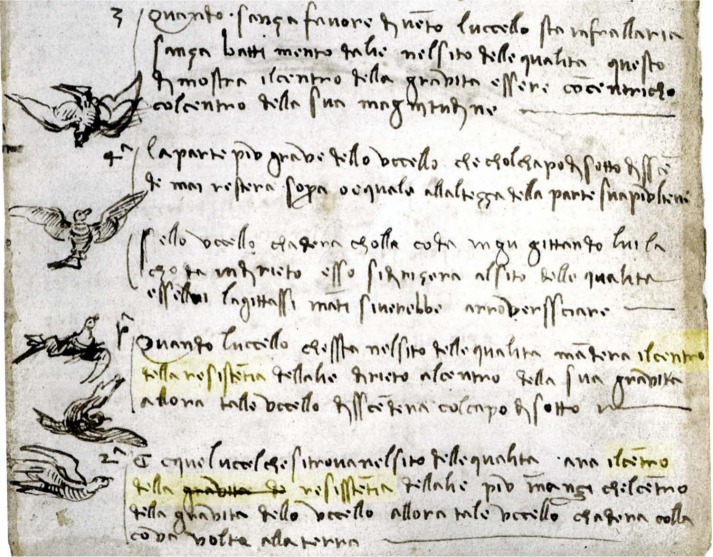 3 Quando sanza favore di vento luccello sta infrallaria
sanza battimento dalie nelsito delle qualita questo
dimostra ilcentro della gravita essere cōcentricho
colcentro della sua magnitudine
4ª la parte piu grave dello uccello che cholchapo disotto disscē
de mai restera sopa o equale allaltezza della parte sua piu lieve
Sello uccello chadera cholla coda in gu gittando lui la
choda indirieto esso sidirizera alsito delle qualita
essellui lagittassiināti siverebbe arroverssciare
pª Quando luccello chessta nelsito delle qualita mādera ilcentro
della resistētia dellalie dirieto alcentro della sua gravita
allora talle uccello disscēdera colcapo disotto
2ª E cquelucelchesitrova nelsito delle qualita ara ilcētro
della gravita de resisstētia dellalie piu inanzi chelcētro
della gravita dello uccello allora tale uccello chadera colla
coda volta alla terra